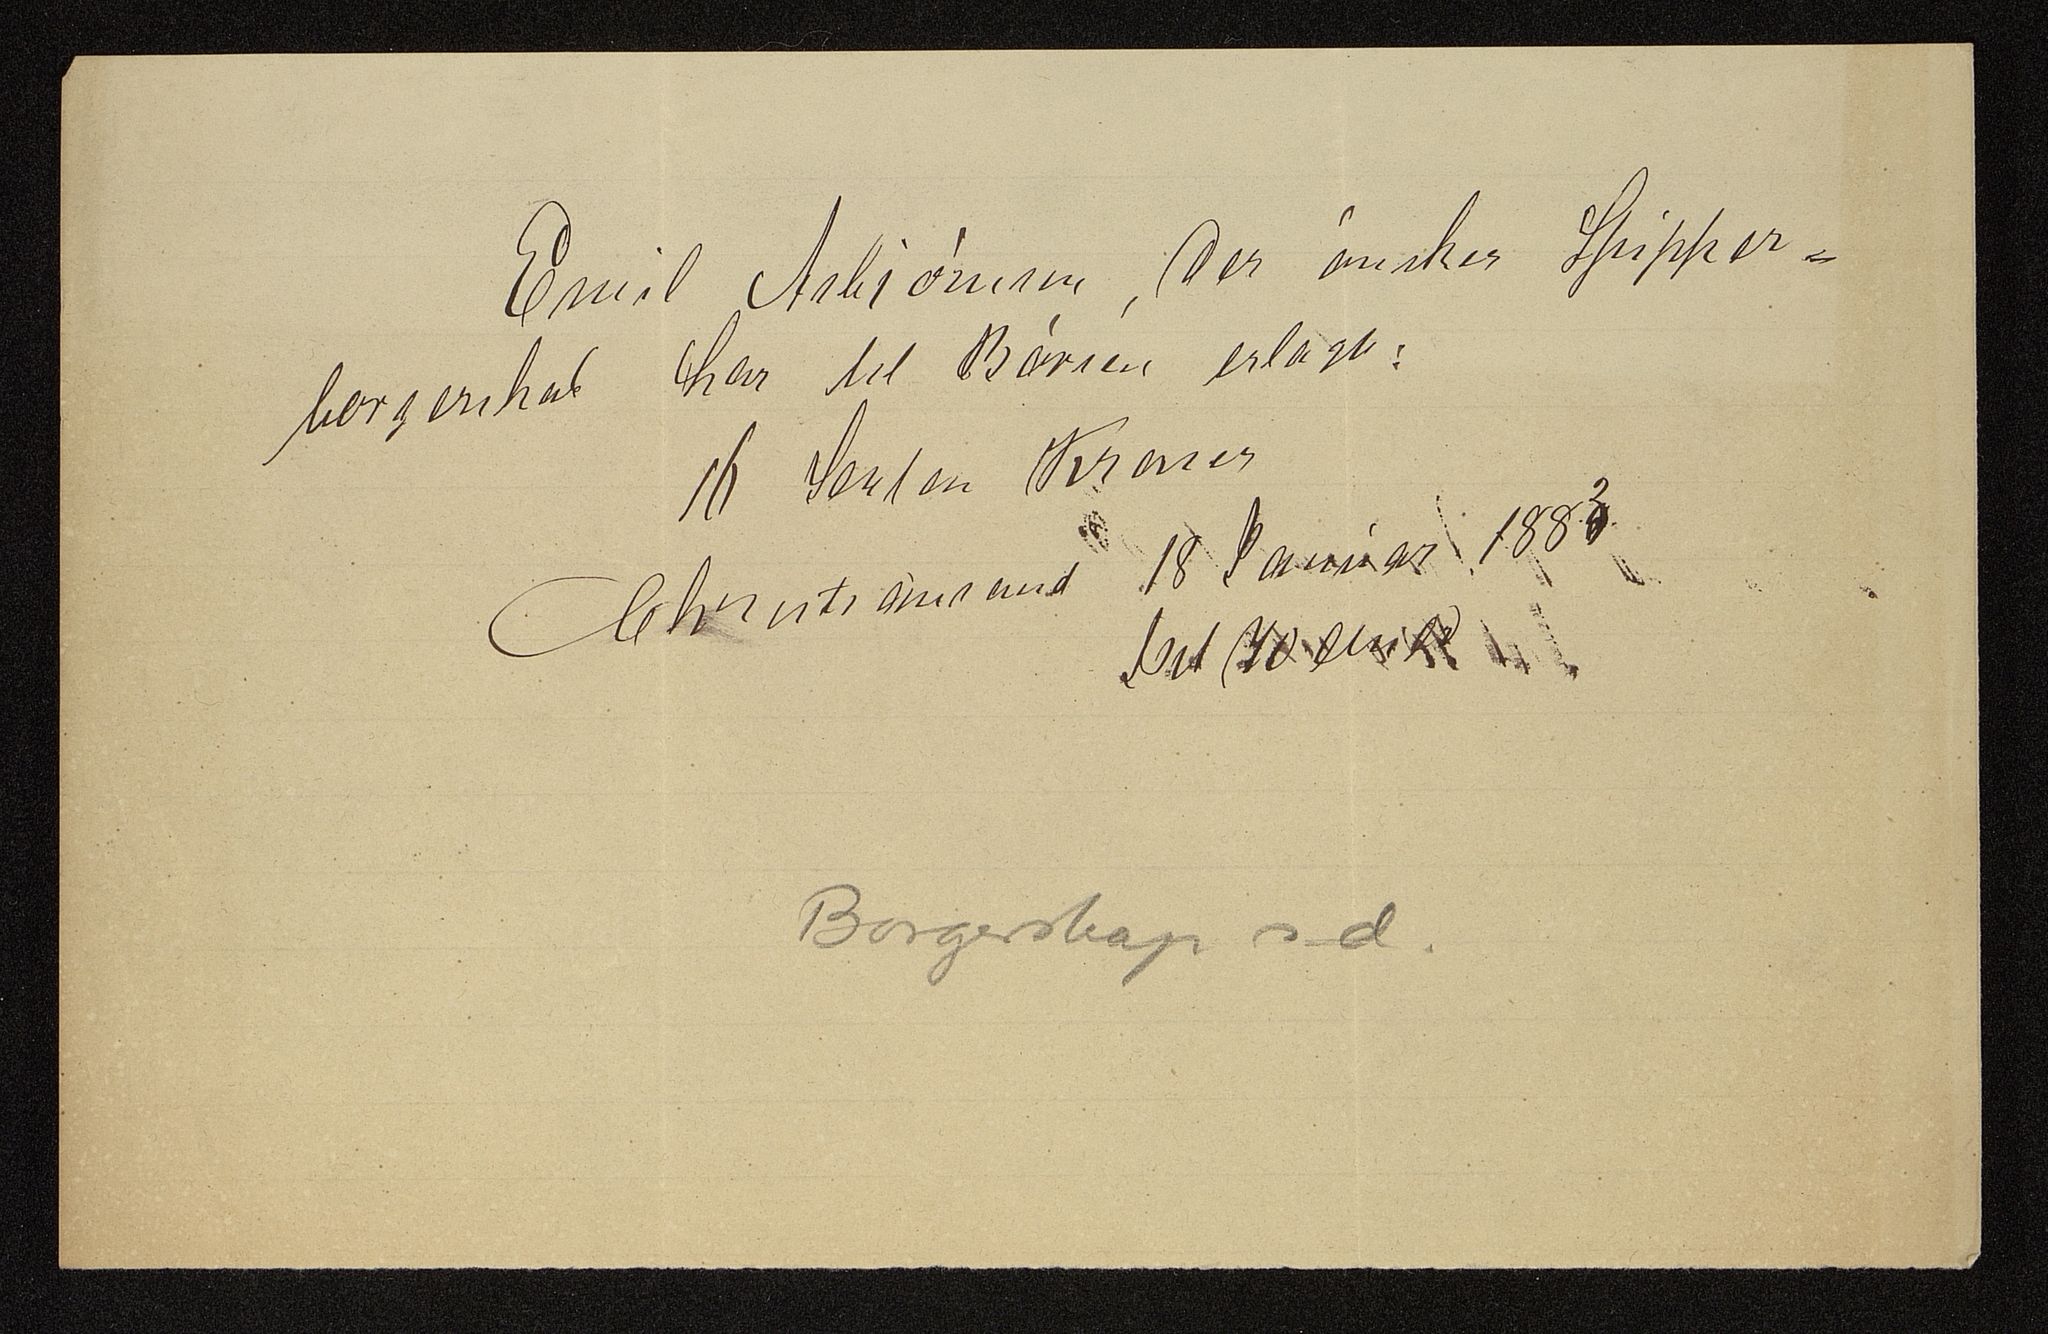 Emil Asbiörnsen, der önsker Skipper=
borgerskab har til Börsen erlagt:
16 Sexten Kroner
Christiansand 18 Januar 1883
Borgerskap s.d.